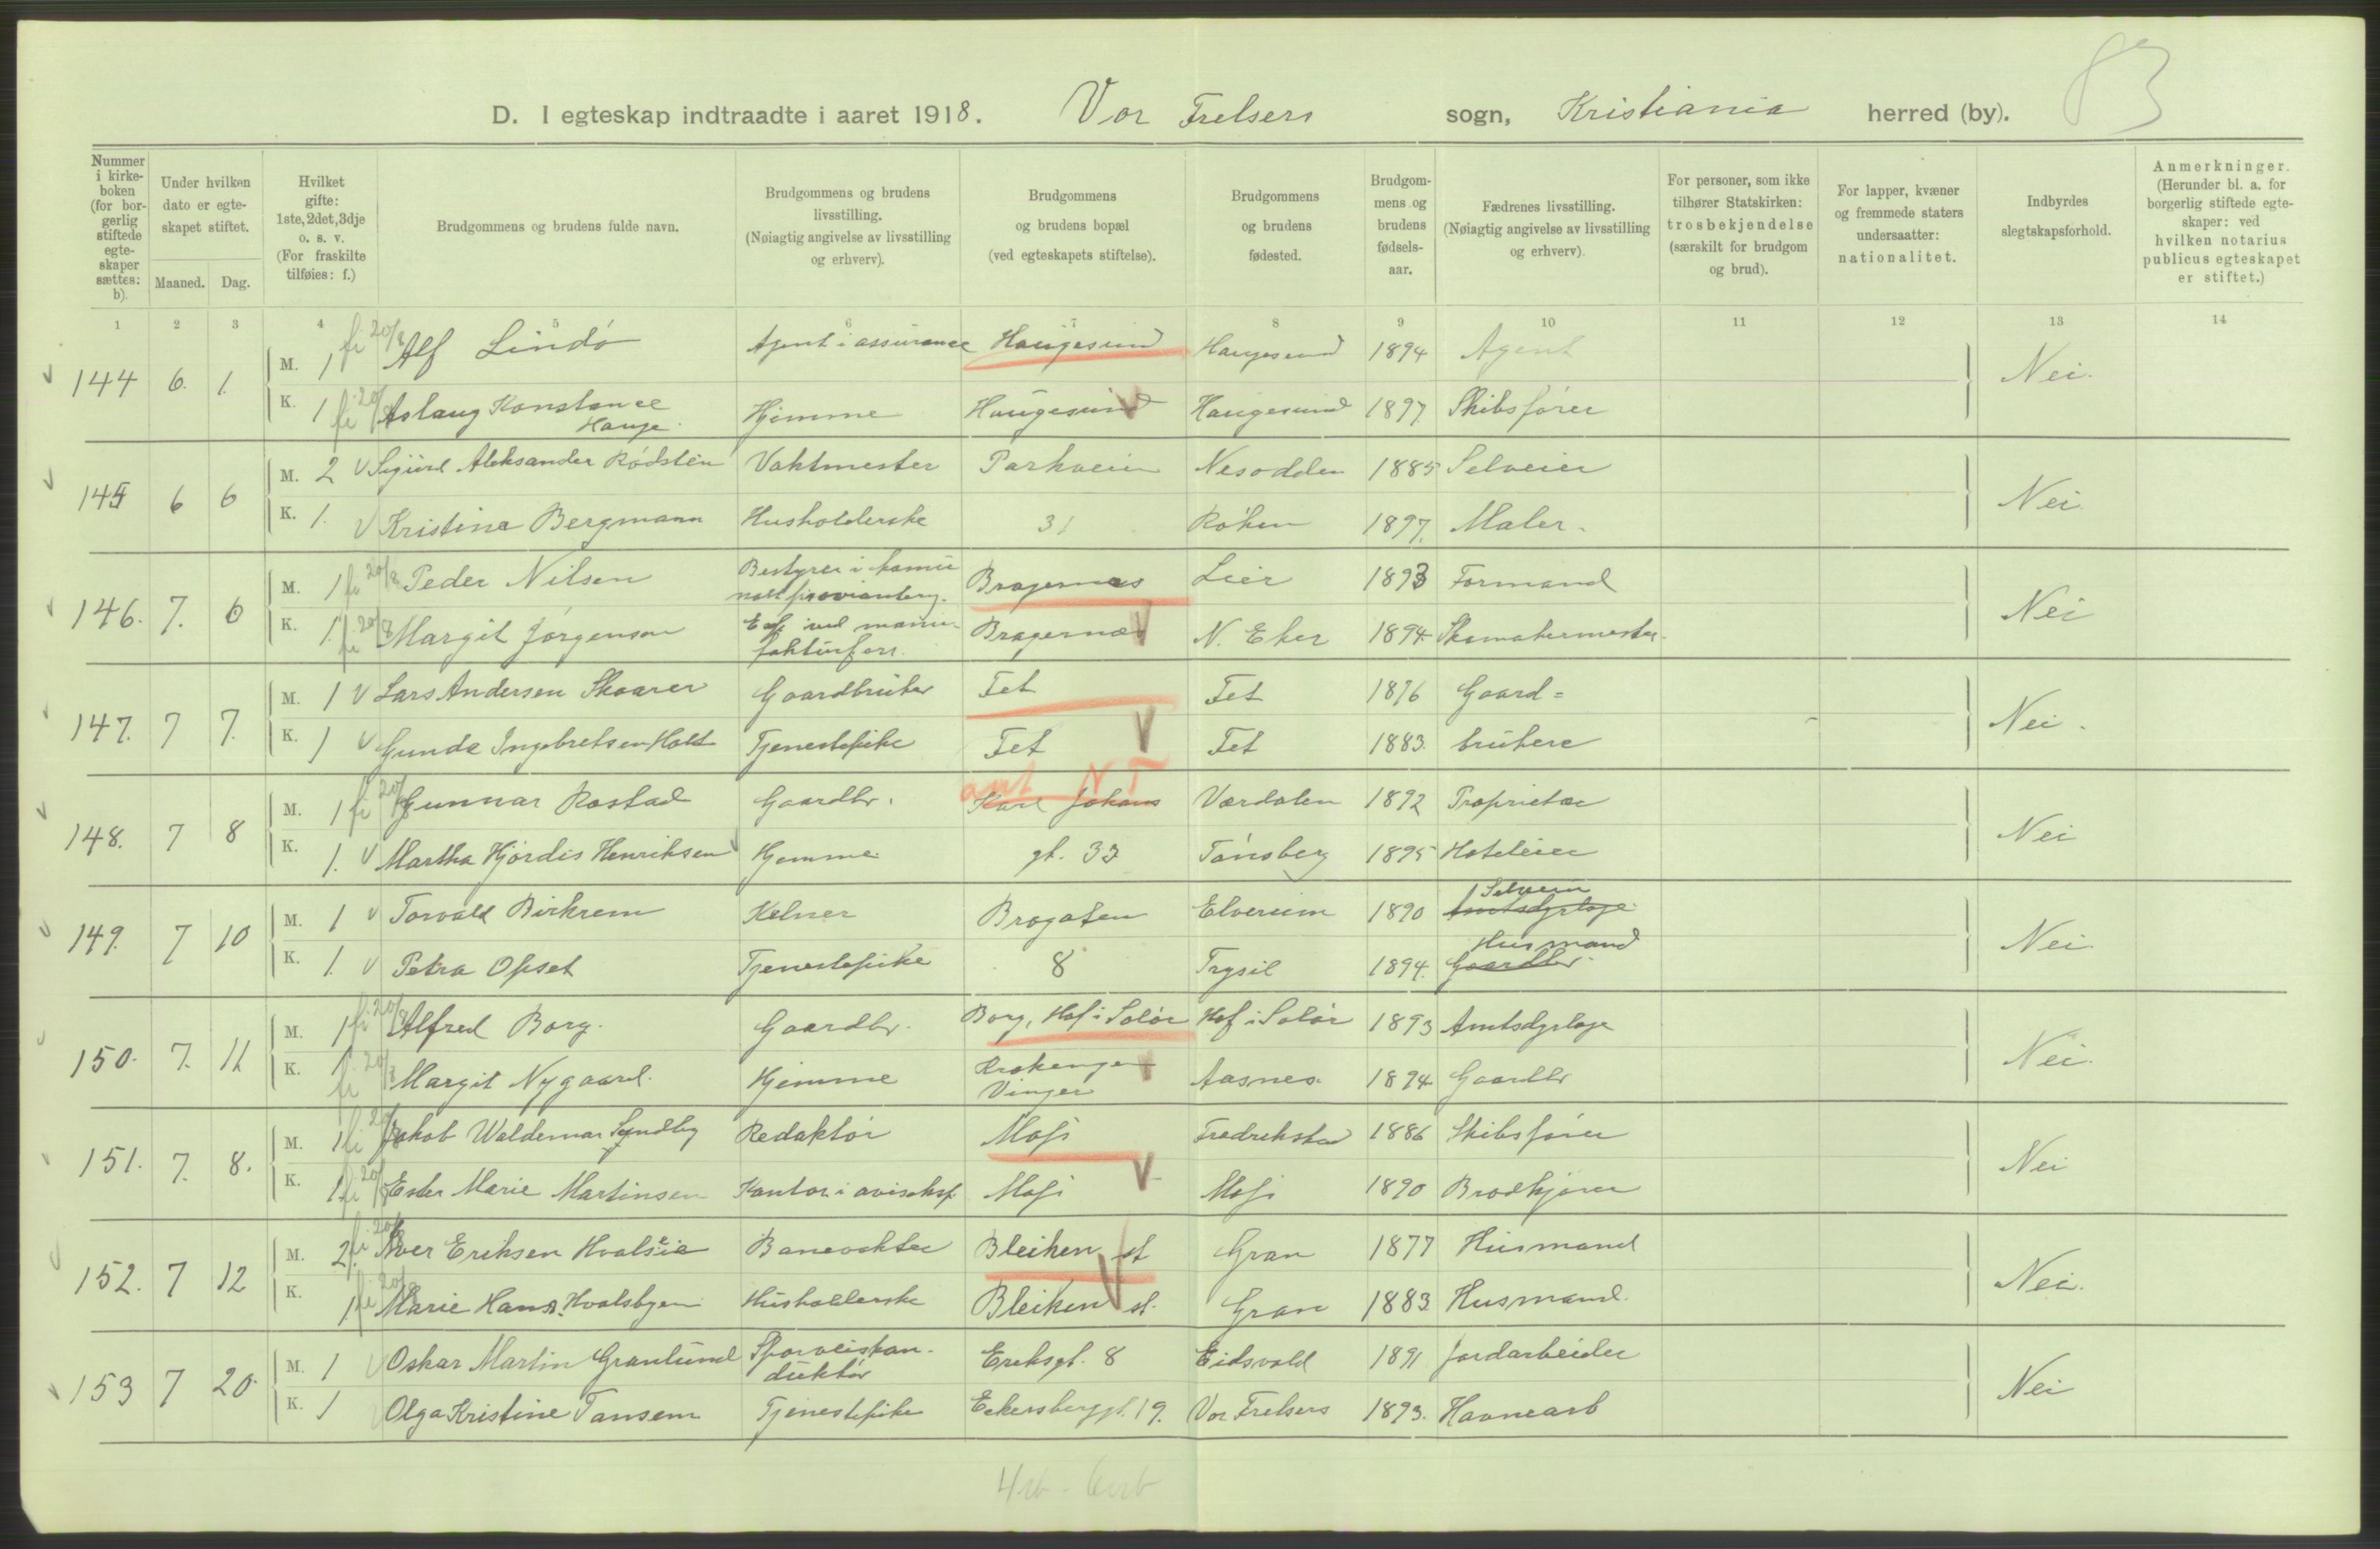 83
D. I egteskap indtraadte i aaret 1918. Vor Frelsers sogn, Kristiania herred (by).
Nummer i kirkeboken (for borgerlig stiftede egteskaper sættes: b).
Under hvilken dato er egteskapet stiftet.
Maaned. Dag.
Hvilket gifte: 1ste, 2det, 3dje o. s. v. (For fraskilte tilføies: f.)
Brudgommens og brudens fulde navn.
Brudgommens og brudens livsstilling. (Nøiagtig angivelse av livsstilling og erhverv).
Brudgommens og brudens bopæl (ved egteskapets stiftelse).
Brudgommens og brudens fødested.
Brudgommens og brudens fødselsaar.
Fædrenes livsstilling. (Nøiagtig angivelse av livsstilling og erhverv).
For personer, som ikke tilhører Statskirken: trosbekjendelse (særskilt for brudgom og brud).
For lapper, kvæner og fremmede staters undersaatter: nationalitet.
Indbyrdes slegtskapsforhold.
Anmerkninger. (Herunder bl. a. for borgerlig stiftede egteskaper: ved hvilken notarius publicus egteskapet er stiftet.)
1 2 3 4 5 6 7 8 9 10 11 12 13 14
144 6. 1. M. 1 fi 20/8 Alf Lindö Agent i assurance Haugesund Haugesund 1894 Agent Nei.
K. 1 fi 20/8 Aslaug Konstance Hauge. Hjemme Haugesund Haugesund 1897. Skibsfører
145 6 6 M. 2 Sigurd Aleksander Rödsten Vaktmester Parkveien Nesodden 1885 Selveier Nei.
K. 1. Kristine Bergmann Husholderske 31 Röken 1897. Maler.
146. 7. 6 M. 1 fi 20/8 Peder Nilsen Bestyrer i Bragernæs Lier 1893 Formand Nei
K. 1. fi 20/8 Margit Jörgensen Bragernæs N. Eker 1894 Skomakermester.
147. 7 7. M. 1 Lars Andersen Skaarer Gaardbruker Fet Fet 1876 Gaard= Nei.
K. 1 Gunda Ingebretsen Holt Tjenestepike Fet Fet 1883. brukere
148. 7 8 M. 1 fi 20/8 Gunnar Rostad Gaardbr. amt N T Karl Johans Værdalen 1892 Proprietær Nei
K. 1. Martha Hjördis Henriksen Hjemme gt. 33 Tönsberg 1895 Hoteleier
149. 7 10 M. 1 Torvald Birkrem Kelner Brogaten Elverum 1890 Selveier Amtsdyrlæge Nei.
K. 1. Petra Opset Tjenestepike 8 Trysil 1894. Husmand Gaardbr.
150. 7. 11 M. 1 fi 20/8 Alfred Borg. Gaardbr. Borg, Hof i Solör Hof i Solör 1893 Amtsdyrlæge Nei.
K. 1 fi 20/8 Margit Nygaard. Hjemme Vinger Aasnes. 1894 Gaardbr
151. 7. 8. M. 1 fi Jakob Waldemar Syndby Redaktör Moss Fredrikstad 1886 Skibsförer Nei
K. 1 fi 20/8 Ester Marie Martinsen Kontor i aviseksp. Moss Moss 1890 Brödkjörer
152. 7 12 M. 2. fi 20/8 Iver Eriksen Hvalseie Banevokter Bleiken st Gran 1877 Husmand Nei.
K. 1 fi 20/8 Marie Hans. Hvalsbyen Husholderske Bleiken st. Gran 1883 Husmand.
153 7 20. M. 1 Oskar Martin Granlund Sporveiskonduktör Eriksgt. 8 Eidsvold 1891 Jordarbeider Nei
K. 1 Olga Kristine Tansem Tjenestepike Eckersberggt. 19. Vor Frelsers 1893. Havnearb